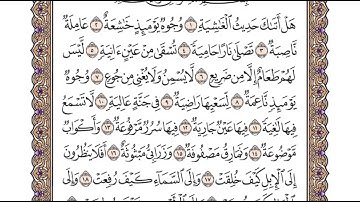 هَلْ أَتَىٰكَ حَدِيثُ ٱلْغَٰشِيَةِ ١ وُجُوهٌ يَوْمَئِذٍ خَٰشِعَةٌ ٢ عَامِلَةٌ
نَّاصِبَةٌ ٣ تَصْلَىٰ نَارًا حَامِيَةً ٤ تُسْقَىٰ مِنْ عَيْنٍ ءَانِيَةٍ ٥ لَّيْسَ
لَهُمْ طَعَامٌ إِلَّا مِن ضَرِيعٍ ٦ لَّا يُسْمِنُ وَلَا يُغْنِى مِن جُوعٍ ٧ وُجُوهٌ
يَوْمَئِذٍ نَّاعِمَةٌ ٨ لِّسَعْيِهَا رَاضِيَةٌ ٩ فِى جَنَّةٍ عَالِيَةٍ ١٠ لَّا تَسْمَعُ
فِيهَا لَٰغِيَةً ١١ فِيهَا عَيْنٌ جَارِيَةٌ ١٢ فِيهَا سُرُرٌ مَّرْفُوعَةٌ ١٣ وَأَكْوَابٌ
مَّوْضُوعَةٌ ١٤ وَنَمَارِقُ مَصْفُوفَةٌ ١٥ وَزَرَابِىُّ مَبْثُوثَةٌ ١٦ أَفَلَا يَنظُرُونَ
إِلَى ٱلْإِبِلِ كَيْفَ خُلِقَتْ ١٧ وَإِلَى ٱلسَّمَآءِ كَيْفَ رُفِعَتْ ١٨ وَإِلَى